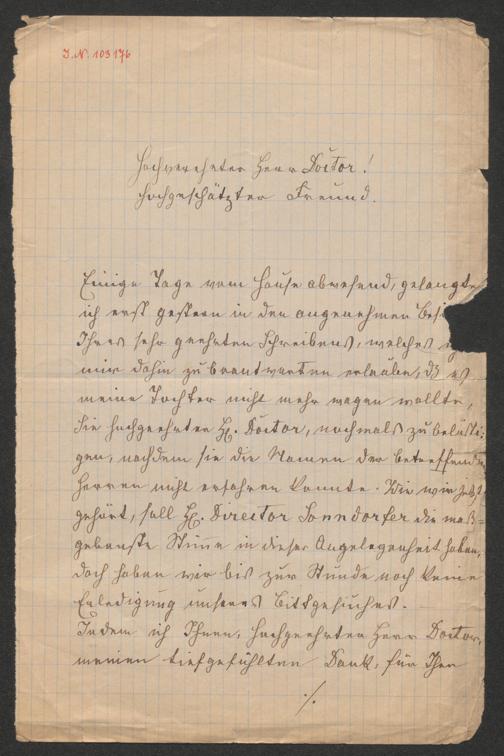 I. N. 103176
Hochverehrter Herr Doctor!
Hochgeschätzter Freund.
Einige Tage vom Hause abwesend, gelangte
ich erst gestern in den angenehmen Besi
Ihres sehr geehrten Schreibens, welches
mir dahin zu beantworten erlaube, dß es
meine Tochter nicht mehr wagen wollte,
Sie hochgeehrter H. Doctor, nochmals zu belästi-
gen, nachdem sie die Namen der betreffenden
Herren nicht erfahren konnte. Wie wir jetzt
gehört, soll H. Director Sonndorfer die maß-
gebenste Stimme in dieser Angelegenheit haben,
doch haben wir bis zur Stunde noch keine
Erledigung unseres Bittgesuches.
Indem ich Ihnen, hochgeehrter Herr Doctor,
meinen tiefgefühlten Dank, für Ihre
./.